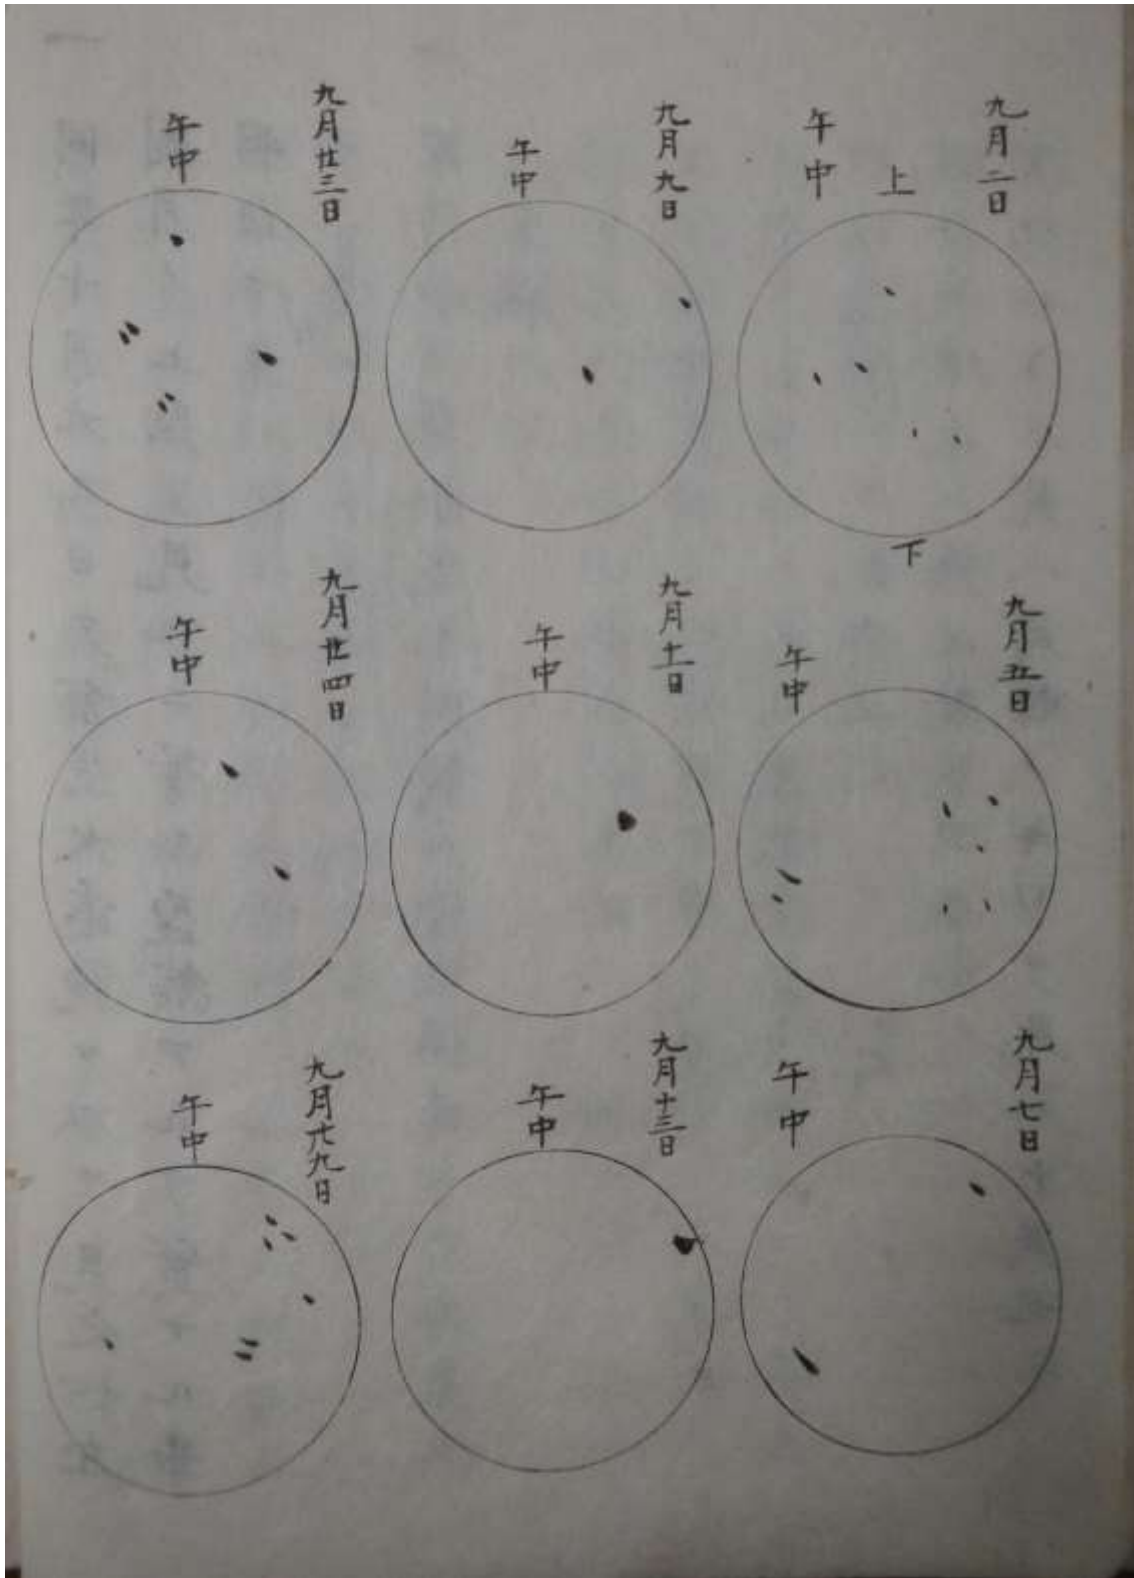 九月二日
上
午中
下
九月五日
午中
九月七日
午中
九月九日
午中
九月十一日
午中
九月十三日
午中
九月廿三日
午中
九月廿四日
午中
九月廿九日
午中